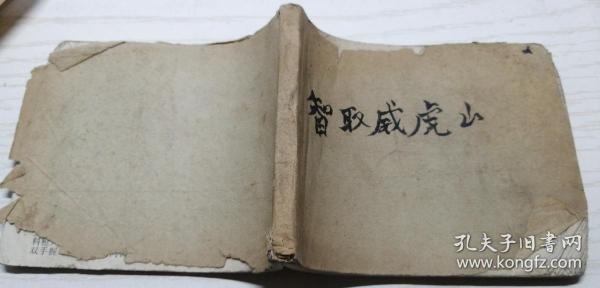 智取威虎山
双手握
孔夫子旧書网
www.kongfz.com